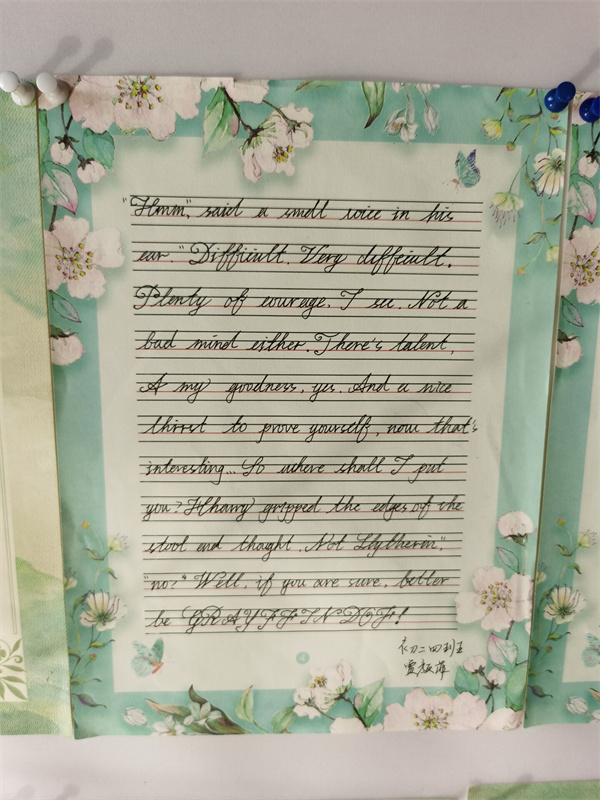 "Hmm," said a small voice in his
ear. "Difficult. Very difficult.
Plenty of courage. I see. Not a
bad mind either. There's talent,
A my goodness, yes. And a nice
thirst to prove yourself, now that's
interesting... So where shall I put
you? Hharry gripped the edges off the
stool and thought. Not Slytherin".
"no?" Well, if you are sure, better
be GRAYFFINDOF!
4
初二四班